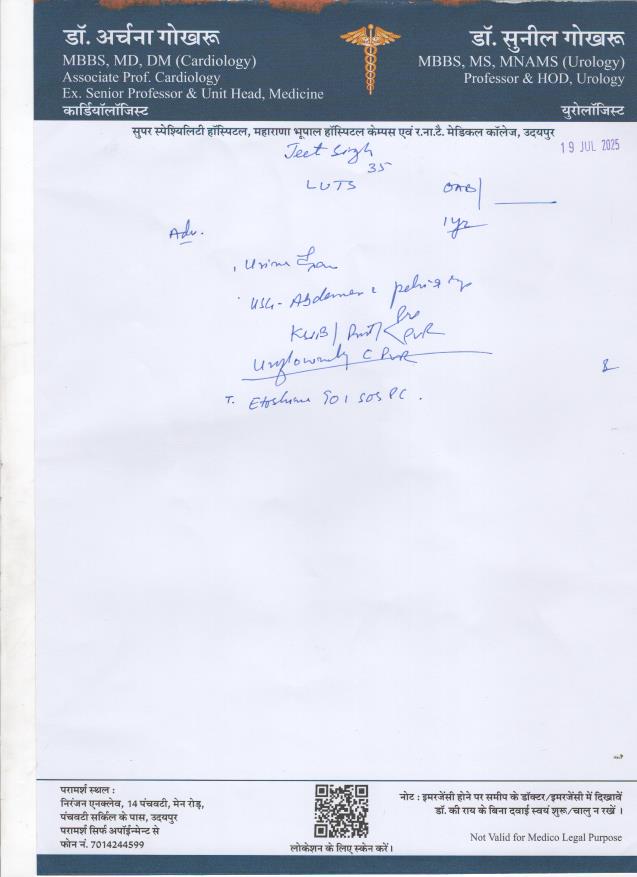 डॉ. अर्चना गोखरू
MBBS, MD, DM (Cardiology)
Associate Prof. Cardiology
Ex. Senior Professor & Unit Head, Medicine
कार्डियॉलॉजिस्ट
डॉ. सुनील गोखरू
MBBS, MS, MNAMS (Urology)
Professor & HOD, Urology
युरोलॉजिस्ट
सुपर स्पेश्यिलिटी हॉस्पिटल, महाराणा भूपाल हॉस्पिटल केम्पस एवं र.ना.टै. मेडिकल कॉलेज, उदयपुर
19 JUL 2025
Jeet Singh
35
LUTS
OAB
1yr
Adv.
Urine
USG - Abdomen
KUB / Prost / Pre PVR
Uroflowmetry C PVR
T. SOS PC.
परामर्श स्थल :
निरंजन एनक्लेव, 14 पंचवटी, मेन रोड़,
पंचवटी सर्किल के पास, उदयपुर
परामर्श सिर्फ अपॉईन्मेन्ट से
फोन नं. 7014244599
लोकेशन के लिए स्केन करें।
नोट : इमरजेंसी होने पर समीप के डॉक्टर/इमरजेंसी में दिखावें
डॉ. की राय के बिना दवाई स्वयं शुरू/चालु न रखें ।
Not Valid for Medico Legal Purpose